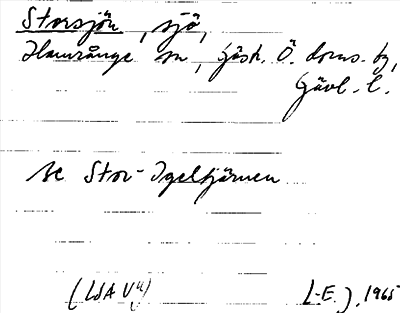 Storsjön, sjö,
Hamrånge sn, Gästr. Ö. doms. tg,
Gävl. l.
se Stor-Igeltjärnen
(LSA V 4) L-E.J. 1965